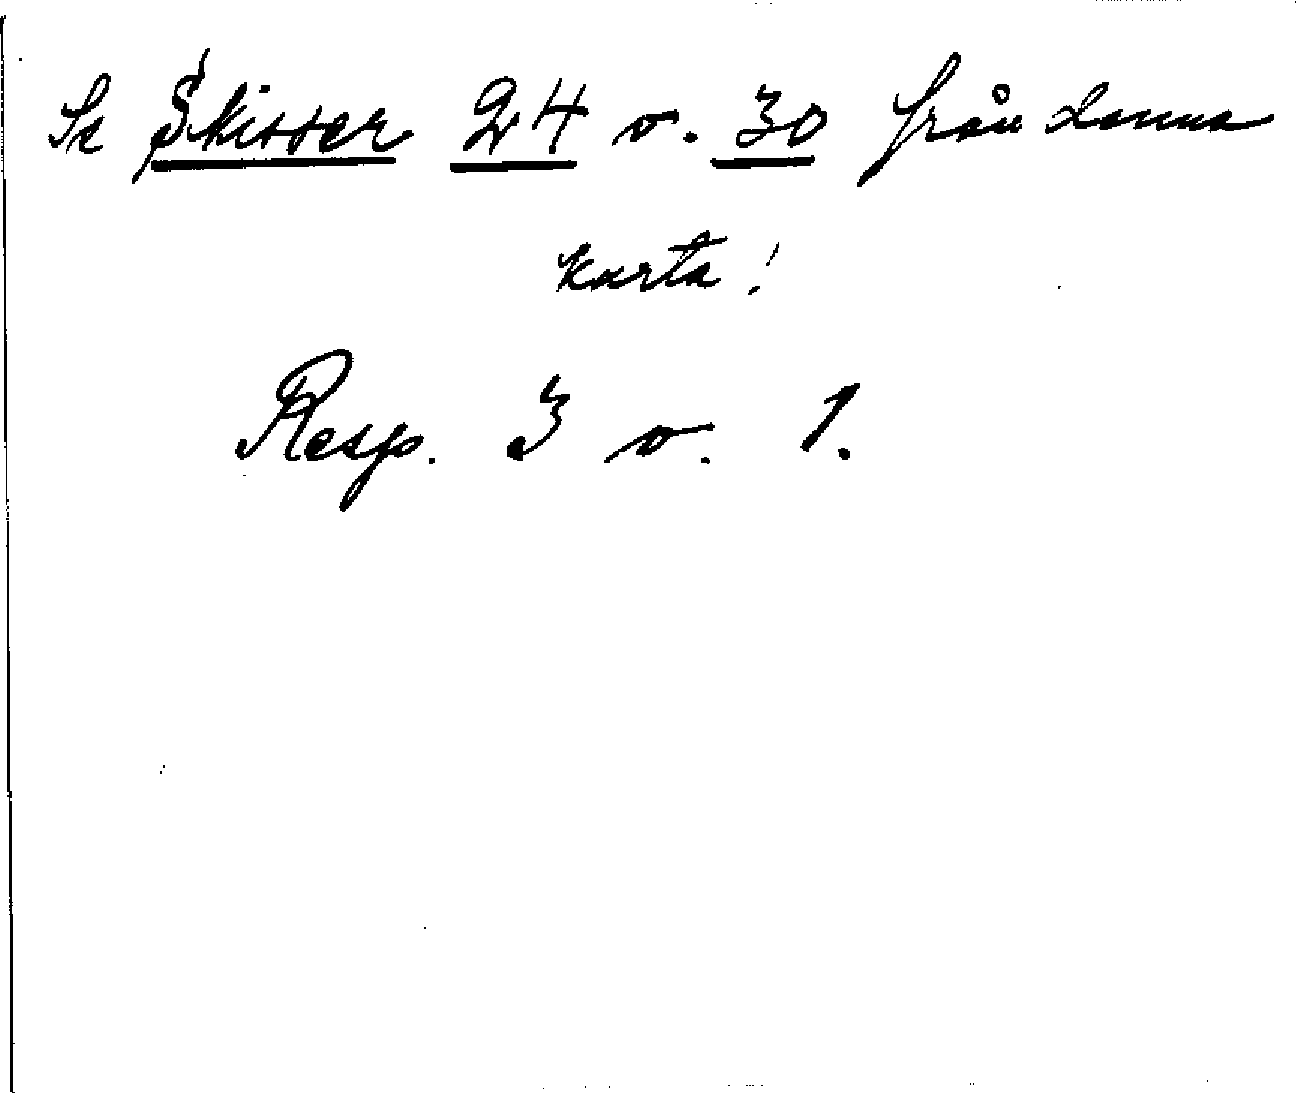 Se Skisser 24 o. 30 från denna
karta!
Resp. 3 o. 1.